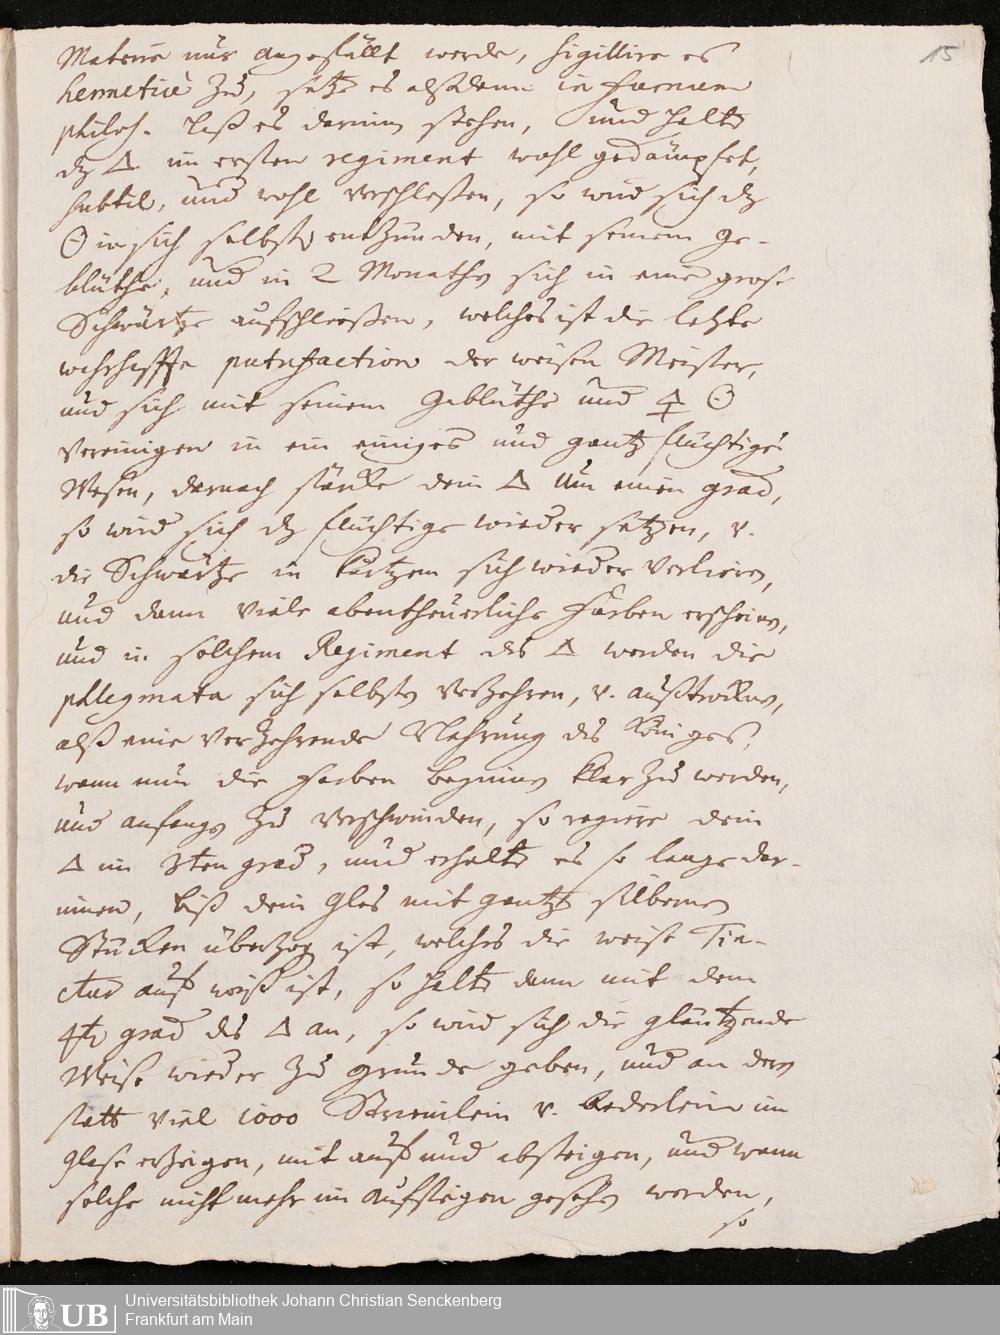 15
Materie nur angefüllt werde, sigillire es
hermeticè zu, setze es alßdann in furnum
philos. laß es darinn stehen, und halte
dz 🜂 im ersten regiment wohl gedämpfet,
subtil, und wohl verschloßen, so wird sich dz
☉ in sich selbst entzünden, mit seinem Ge-
blüthe, und in 2 Monathen sich in eine große
Schwärtze aufschließen, welches ist die letzte
wahrhaffte putrefaction der weisen Meister,
und sich mit seinem Geblüthe und 🜍 ☉
vereinigen in ein einiges und gantz flüchtiges
Wesen, darnach stärcke dein 🜂 um einen grad,
so wird sich dz flüchtige wieder setzen, v.
die Schwärtze in kurtzem sich wieder verlieren,
und dann viele abentheuerliche Farben erscheinen,
und in solchem Regiment des 🜂 werden die
phlegmata sich selbsten verzehren, v. außtrocknen,
alß eine verzehrende Nahrung des Königes,
wann nun die Farben beginnen klar zu werden,
und anfangen zu verschwinden, so regiere dein
🜂 im 3ten grad, und erhalte es so lange dar-
innen, biß dein Glas mit gantz silbernen
Stücken überzogen ist, welches die weise Tin-
ctur auf weiß ist, so halte dann mit dem
4ten grad des 🜂 an, so wird sich die gläntzende
Weiße wieder zu grunde geben, und an dero
statt viel 1000 Stroemlein v. Aederlein im
Glase erzeigen, mit auf und absteigen, und wann
solche nicht mehr im aufsteigen gesehen werden,
so
UB
Universitätsbibliothek Johann Christian Senckenberg
Frankfurt am Main